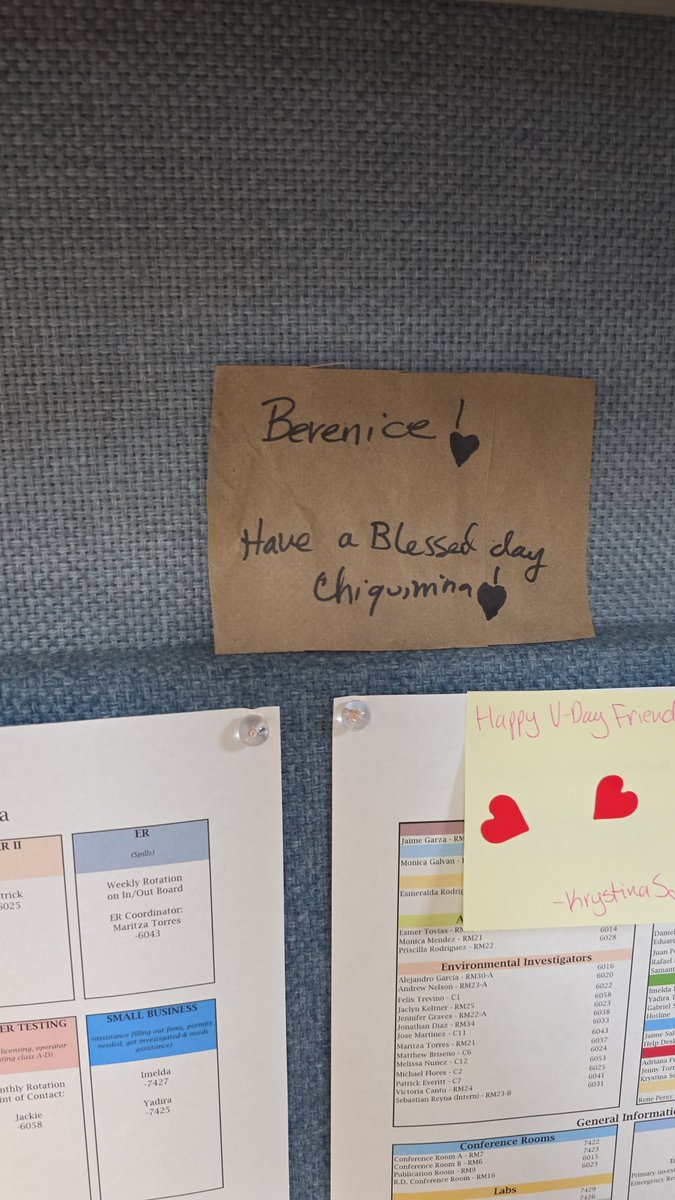 Berenice!
Have a Blessed day
Chiquinina!
Happy V-Day Friend
-Krystina
ER II
6025
ER
(Spills)
Weekly Rotation
on In/Out Board
ER Coordinator:
Maritza Torres
-6043
ER TESTING
licensing, operator
class A-D)
Rotation
Contact:
Jackie
-6058
SMALL BUSINESS
(assistance filling out foms, permits
needed, got investigated & needs
assistance)
Imelda
-7427
Yadira
-7425
Jaime Garza - RM
Monica Galvan -
Esmeralda Rodrig
Esmer Tovias - RM
Monica Mendez - RM21
Priscilla Rodriguez - RM22
6014
6028
Environmental Investigators
Alejandro Garcia - RM30-A 6016
Andrew Nelson - RM23-A 6020
Felix Trevino - C1 6022
Jaclyn Keltner - RM25 6058
Jennifer Graves - RM22-A 6023
Jonathan Diaz - RM34 6038
Jose Martinez - C11 6033
Maritza Torres - RM21 6043
Matthew Briseno - C6 6037
Melissa Nunez - C12 6024
Michael Flores - C2 6053
Patrick Everitt - C7 6025
Victoria Cantu - RM24 6041
Sebastian Reyna (Intern) - RM23-B 6031
General Informatio
Conference Rooms
Conference Room A - RM7 7422
Conference Room B - RM6 7423
Publication Room - RM9 6015
R.D. Conference Room - RM16 6023
Labs
7429
7426
Daniel
Eduar
Juan P
Rafael
Samant
Imelda
Yadira T
Gabriel S
Hotline
Jaime Sala
Help Desk
Adriana F
Jenny Torr
Krystina So
Rene Perez
Primary inves
Emergency Re